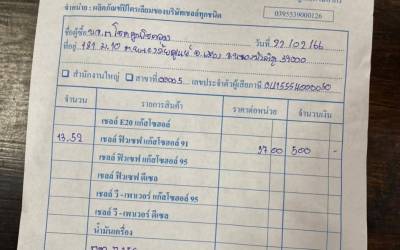 จำหน่าย : ผลิตภัณฑ์ปิโตรเลียมของบริษัทเชลล์ทุกชนิด
0395539000126
ชื่อผู้ซื้อ วันที่ 22/02/66
ที่อยู่ 181 ม.10 39000
สำนักงานใหญ่ สาขาที่ 00005 เลขประจำตัวผู้เสียภาษี
จำนวน รายการสินค้า ราคาต่อหน่วย จำนวนเงิน
เชลล์ E20 แก๊สโซฮอล์
13.59 เชลล์ ฟิวเซฟ แก๊สโซฮอล์ 91 37.00 500 -
เชลล์ ฟิวเซฟ แก๊สโซฮอล์ 95
เชลล์ ฟิวเซฟ ดีเซล
เชลล์ วี - เพาเวอร์ แก๊สโซฮอล์ 95
เชลล์ วี - เพาเวอร์ ดีเซล
น้ำมันเครื่อง